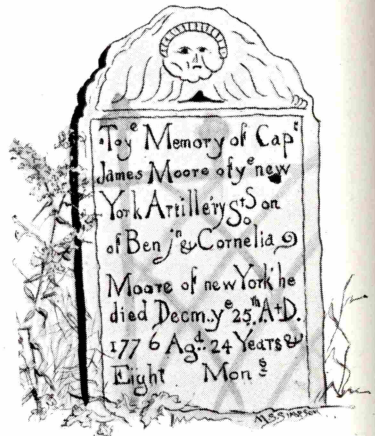 To yᵉ Memory of Capᵗ
James Moore of yᵉ new
York Artillery Sᵗˢ Son
of Benjⁿ & Cornelia
Moore of new York he
died Decm. yᵉ 25.ᵗʰ A+D.
1776 Agᵈ. 24 Years &
Eight Monˢ
M.S. SIMPSON